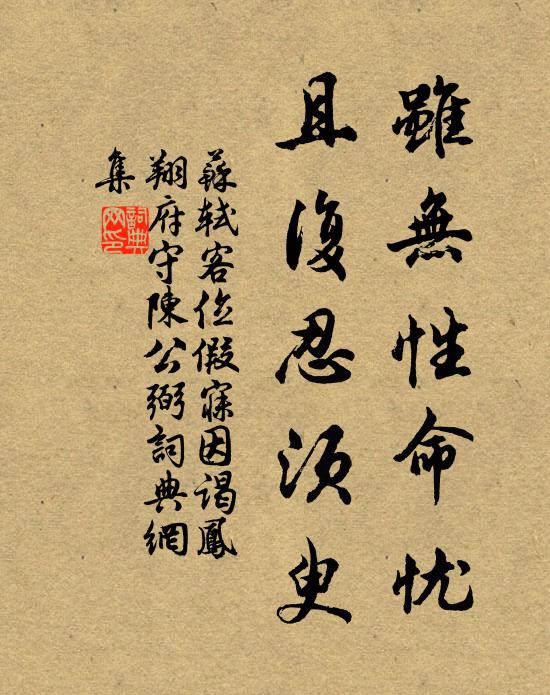 雖無性命忧
且復忍須臾
蘇軾客位假寐因謁鳳
翔府守陳公弼詞典網
集
詞典
网印